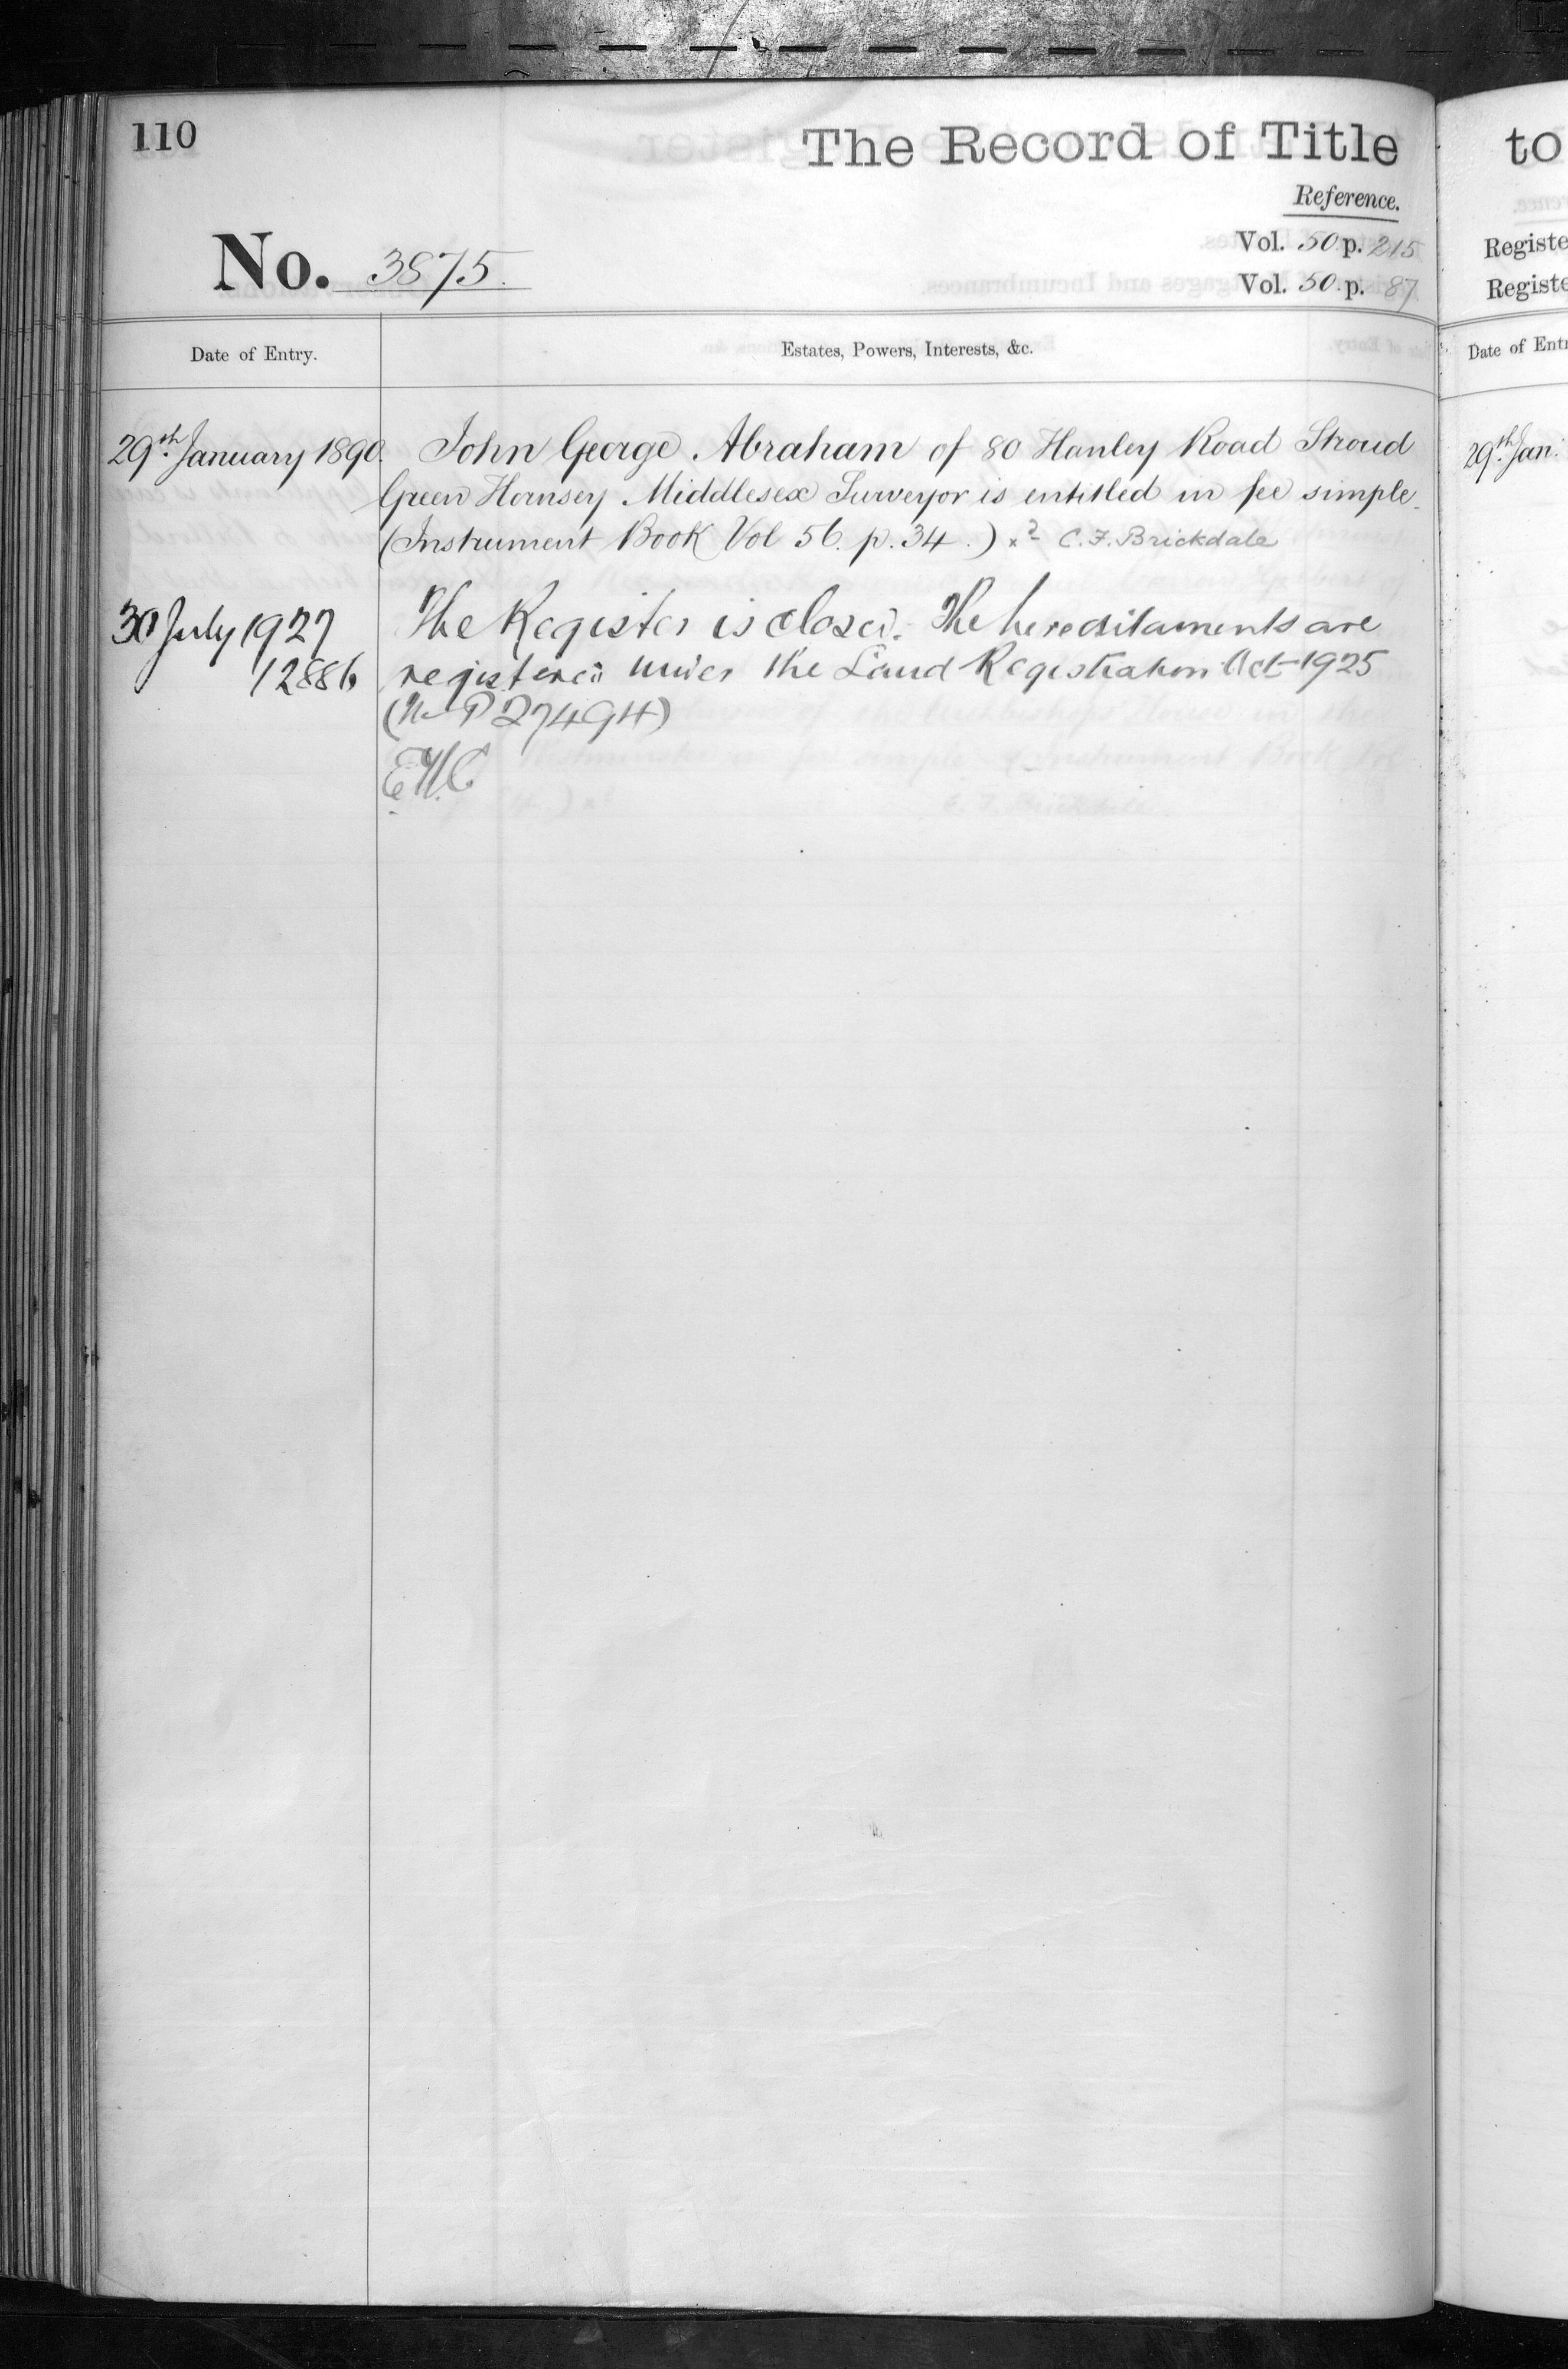 110
The Record of Title
Reference.
No. 3875.
Vol. 50 p. 215
Vol. 50. p. 87
Date of Entry.
Estates, Powers, Interests, &c.
29th January 1890. John George Abraham of 80 Hanley Road Stroud
Green Hornsey Middlesex Surveyor is entitled in fee simple.
(Instrument Book Vol 56. p. 34.) C. F. Brickdale
30 July 1927 The Register is closed. The hereditaments are
12886 registered under the Land Registration Act 1925
(No P 27494)
to
Registe
Registe
Date of Ent
29th Jan.